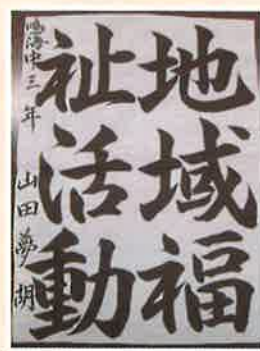 地域福
祉活動
鳴海中三年 山田夢胡